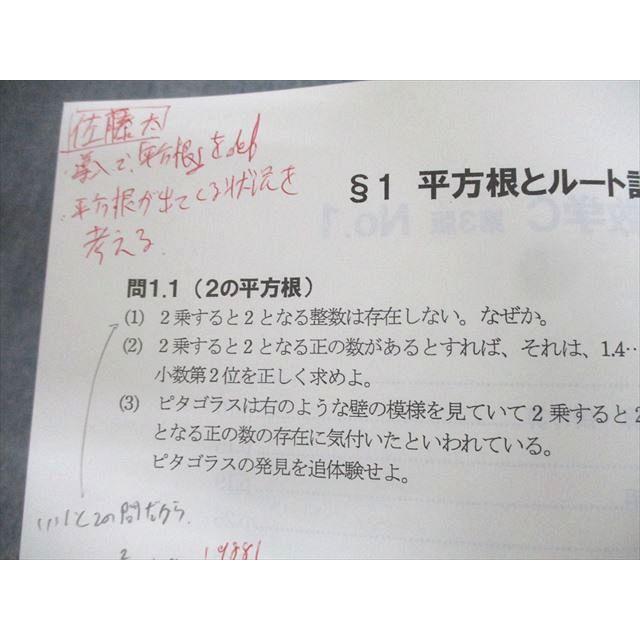 佐藤太
・導入で、「平方根」をdef
・平方根が出てくる状況を
考える.
§1 平方根とルート記
数学C 第3版 No.1
問1.1（2の平方根）
(1) 2乗すると2となる整数は存在しない。なぜか。
(2) 2乗すると2となる正の数があるとすれば、それは、1.4…
小数第2位を正しく求めよ。
(3) ピタゴラスは右のような壁の模様を見ていて2乗すると2
となる正の数の存在に気付いたといわれている。
ピタゴラスの発見を追体験せよ。
1と2の間だから.